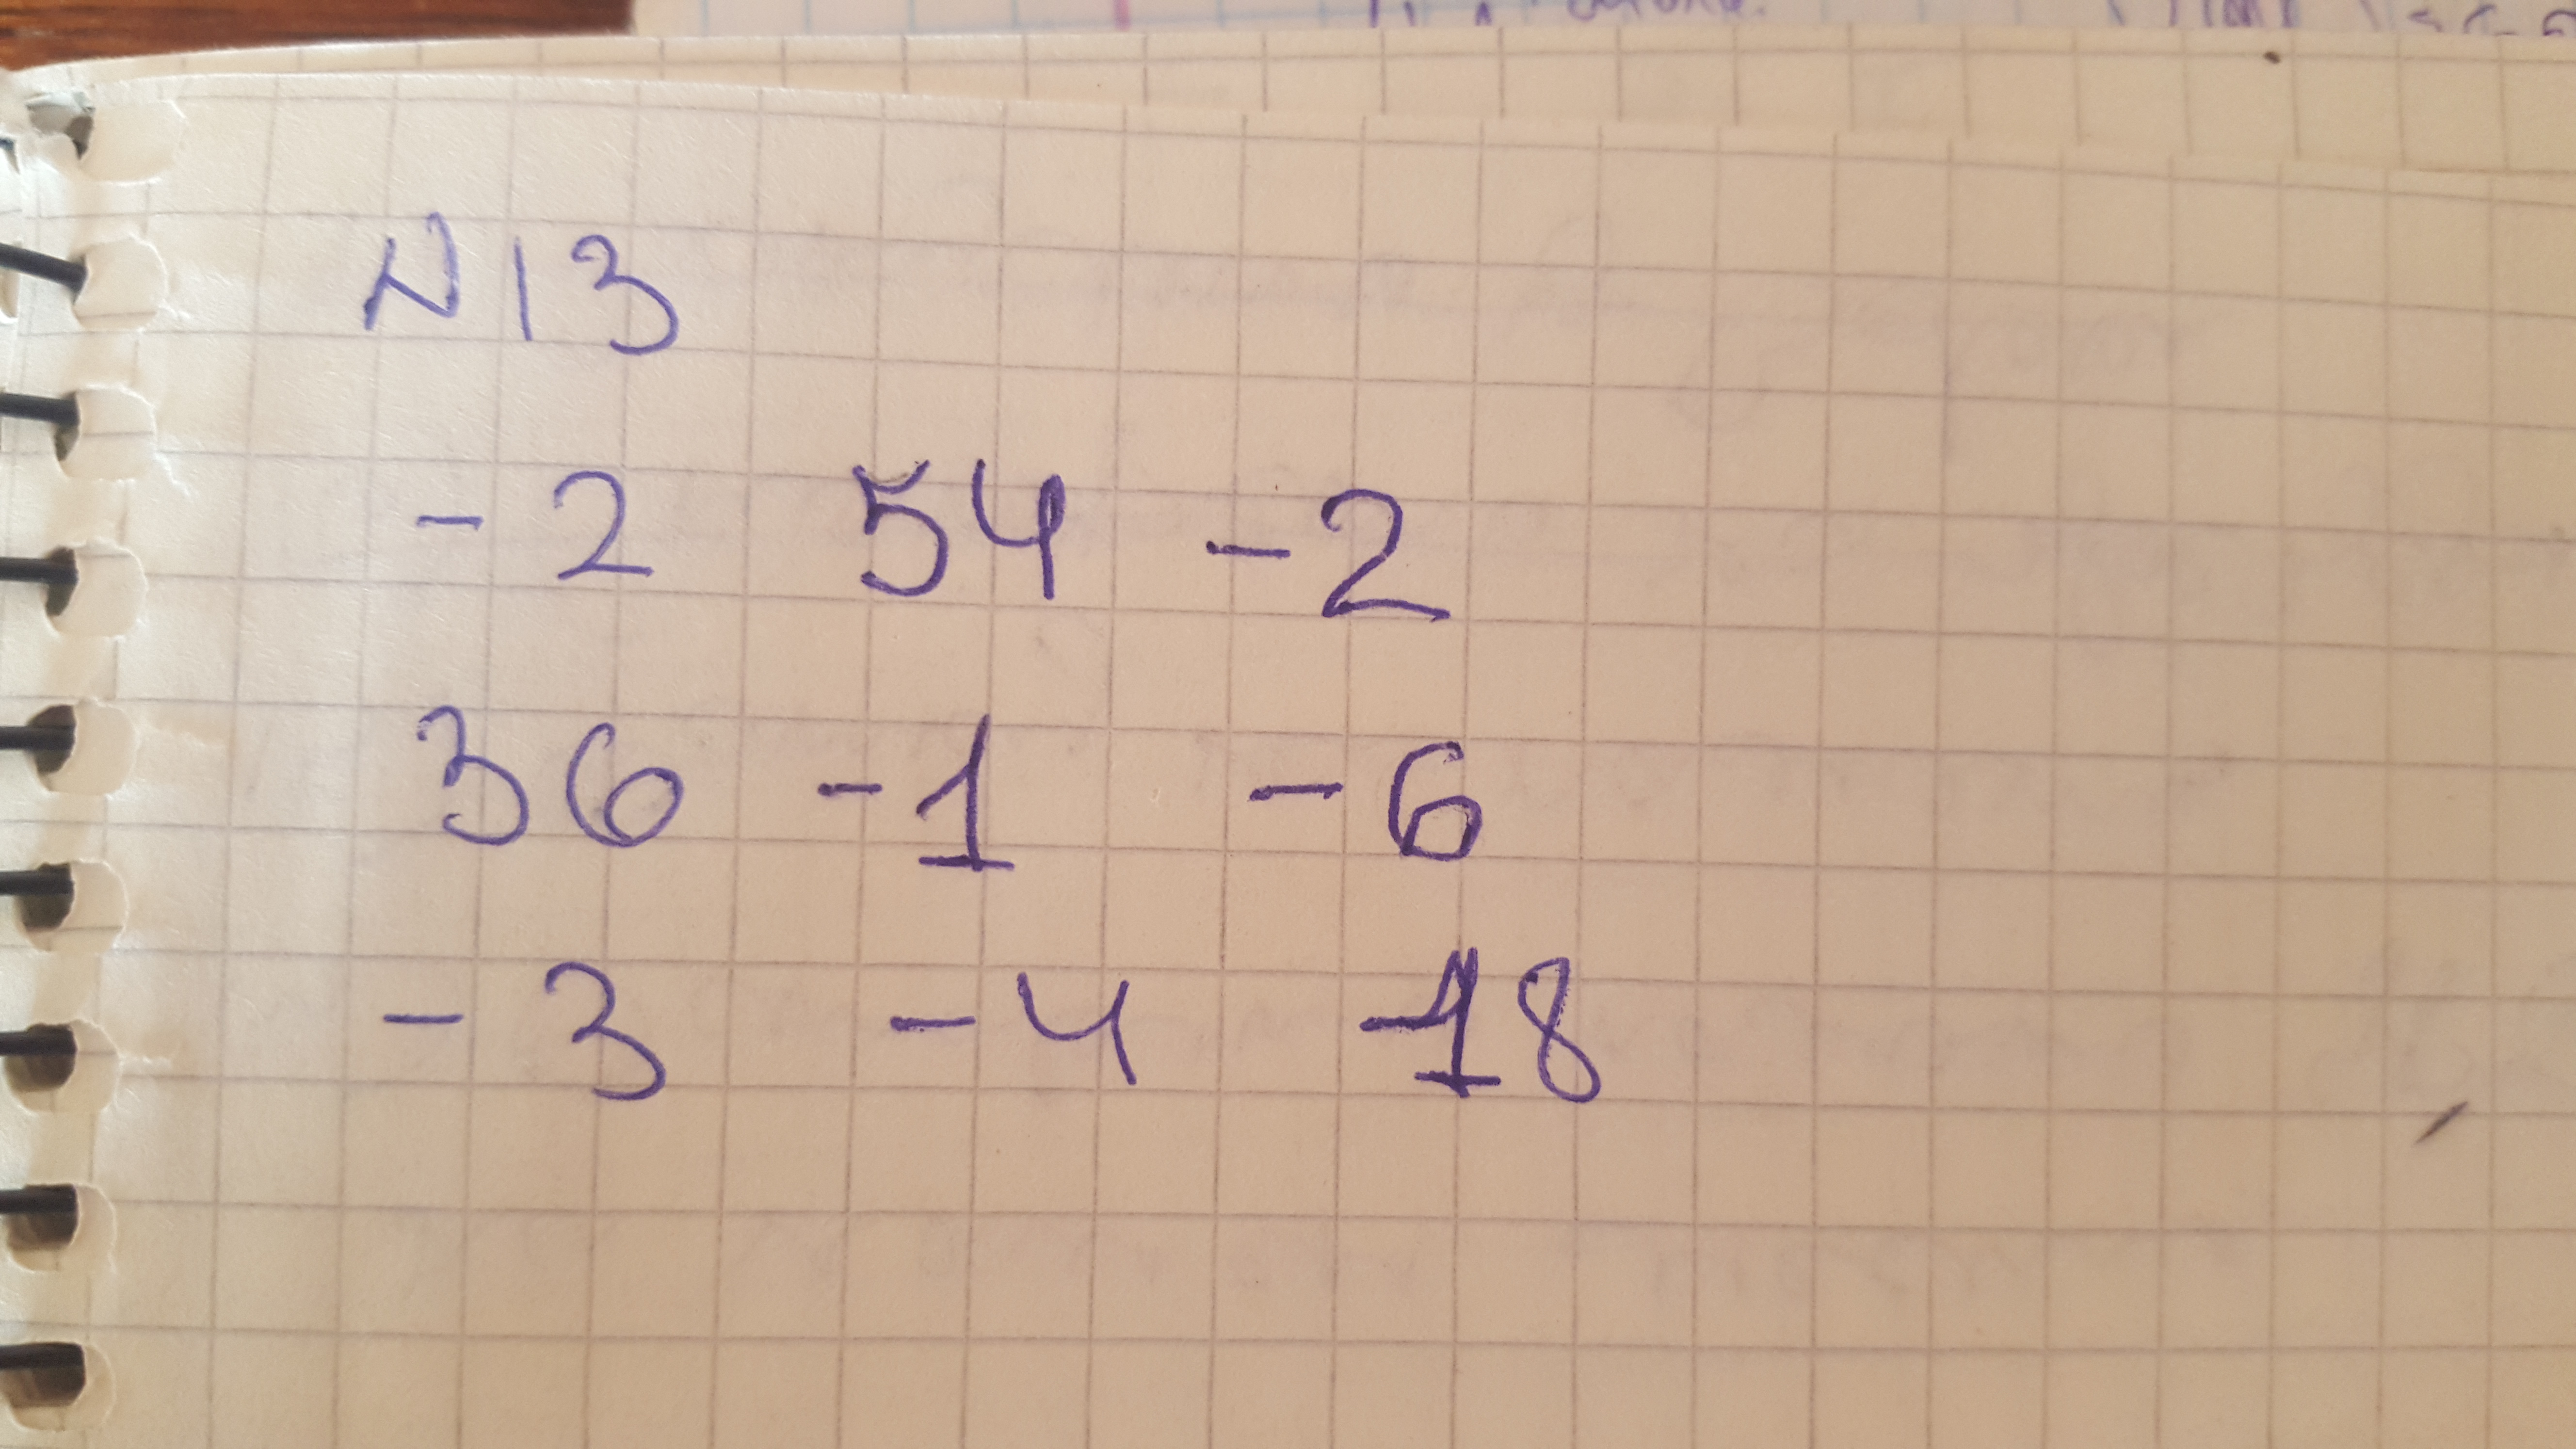 N13
-2 54 -2
36 -1 -6
-3 -4 -18